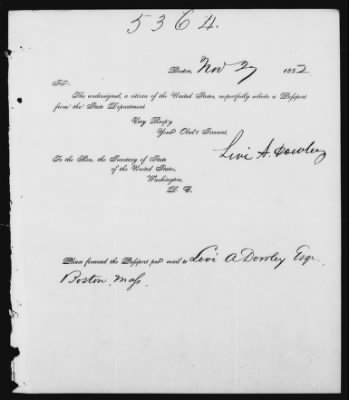 5364.
Boston, Nov 27 1852.
Sir:
The undersigned, a citizen of the United States, respectfully solicits a Passport
from the State Department.
Very Resp'y
Your Obd't Servant,
Levi A. Dowley
To the Hon. the Secretary of State
of the United States,
Washington,
D. C.
When granted the Passport per mail to Levi A Dowley Esqr.
Boston, Mass.